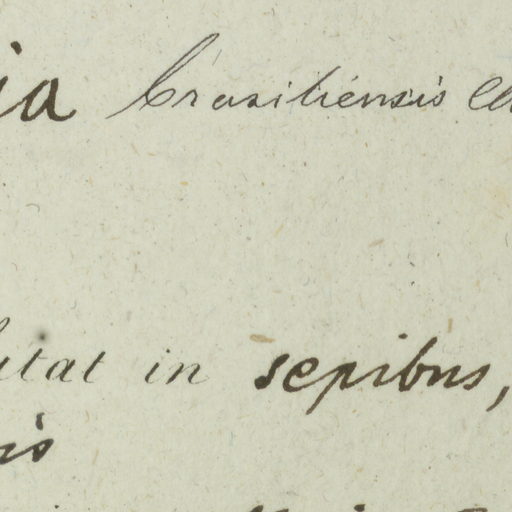 ia brasiliensis
itat in sepibus,
is